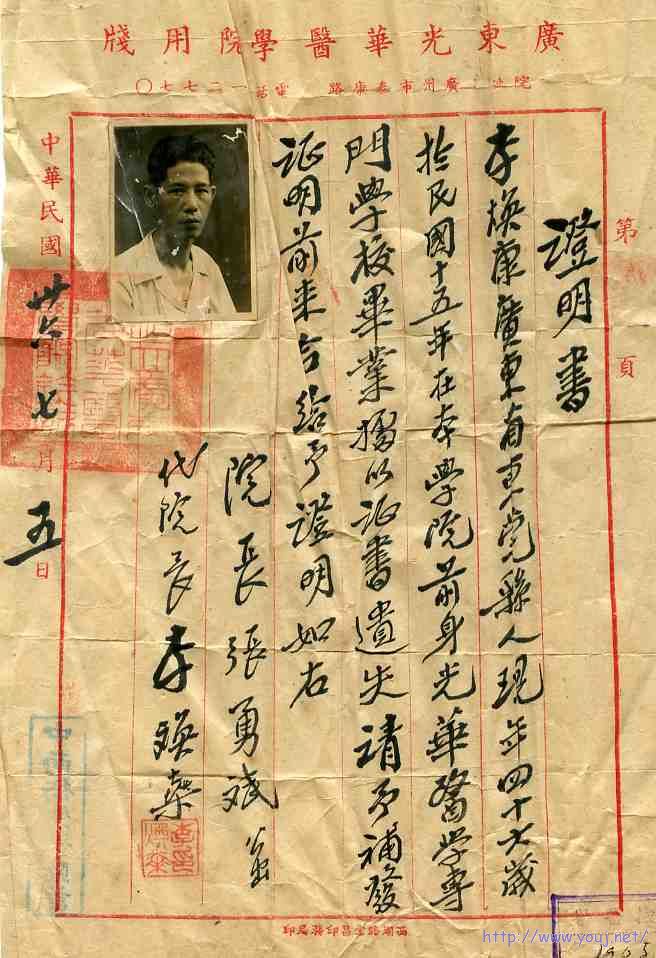 廣東光華醫學院用牋
院址 廣州市泰康路 電話一二七七〇
第 頁
證明書
李煥康廣東省東莞縣人現年四十七歲
於民國十五年在本學院前身光華醫學專
門學校畢業據以証書遺失請予補發
証明前來合給予證明如右
院長張勇斌
代院長李煥燊
中華民國卅六年七月五日
西湖路 昌印務局印
http://www.youj.net/